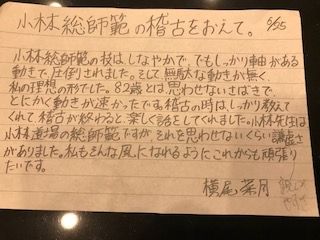 小林総師範の稽古をおえて。 6/25
小林総師範の技は、しなやかで、でもしっかり軸がある
動きで、圧倒されました。そして無駄な動きが無く、
私の理想の形でした。82歳とは思わせないさばきで、
とにかく動きが速かったです。稽古の時はしっかり教えて
くれて稽古が終わると楽しく話をしてくれました。小林先生は
小林道場の総師範ですが、それを思わせないくらい謙虚さ
がありました。私もそんな風になれるようにこれからも頑張り
たいです。
横尾 菜月